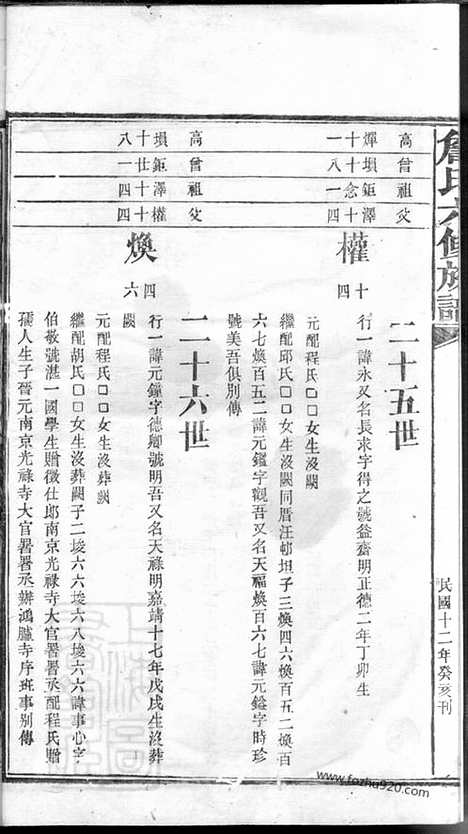 詹氏六修族譜
民國十二年癸亥刊
高 煇十一
曾 塤十八
祖 鉅念一
父 澤十四
權 十四
二十五世
行一諱永又名長求字得之號益齋明正德二年丁卯生
元配程氏□□女生沒闕
繼配邱氏□□女生沒闕同厝汪邨坦子三煥四六煥百五二煥百
六七煥百五二諱元鑑字觀吾又名天福煥百六七諱元鎰字時珍
號美吾俱別傳
高 塤十八
曾 鉅廿一
祖 澤十四
父 權十四
煥 四六
二十六世
行一諱元鐘字德卿號明吾又名天祿明嘉靖十七年戊戌生沒葬
闕
元配程氏□□女生沒葬闕
繼配胡氏□□女生沒葬闕子二埈六六埈六八埈六六諱事心字
伯敬號湛一國學生贈徵仕郎南京光祿寺大官署署丞配程氏贈
孺人生子晉元南京光祿寺大官署署丞辦鴻臚寺序班事別傳
www.fozhu920.com